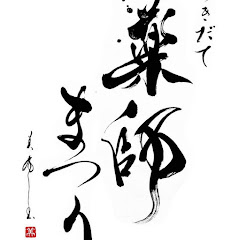 きだて
薬師
まつり